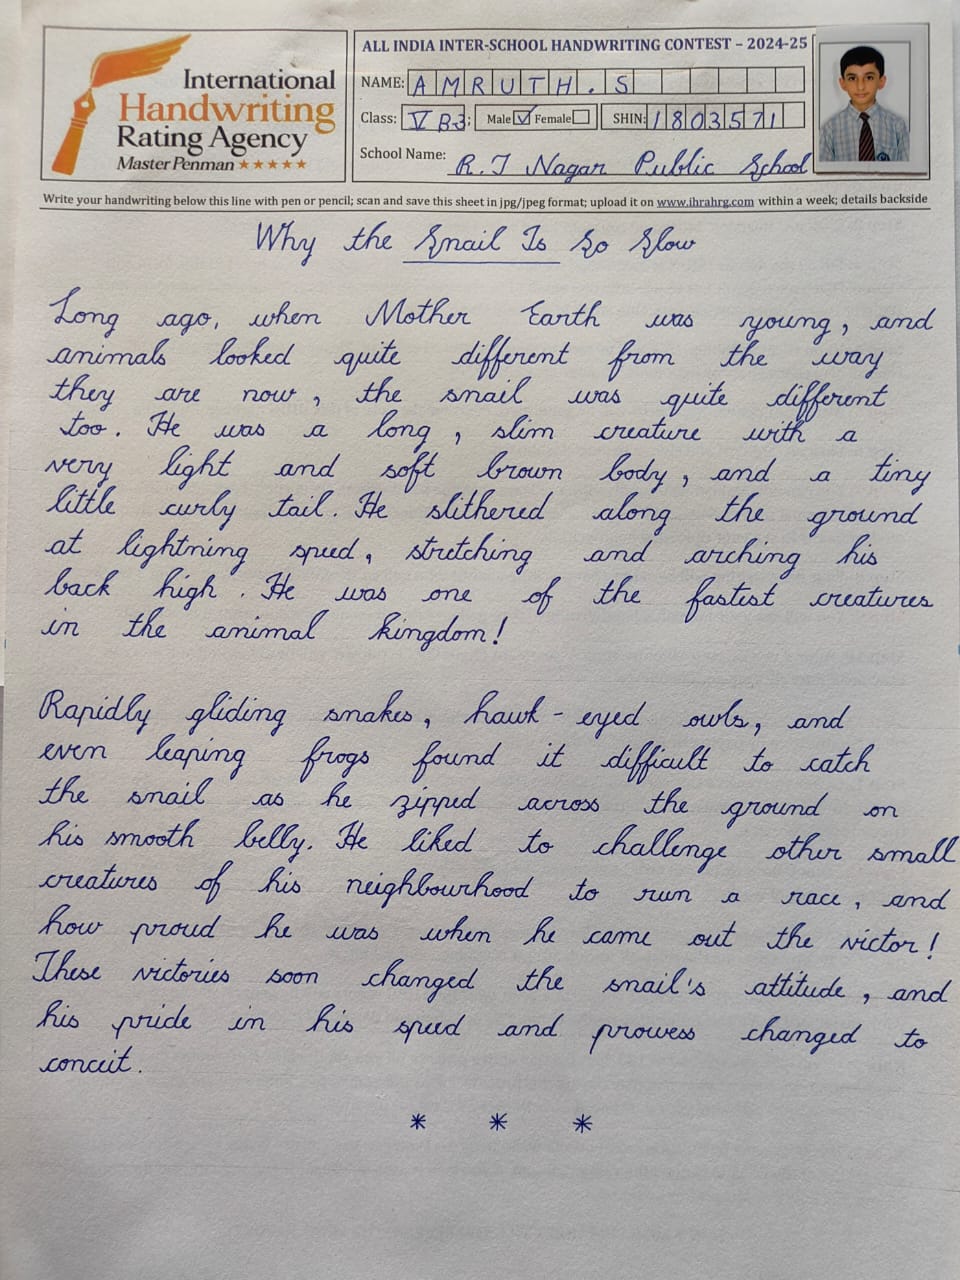 International
Handwriting
Rating Agency
Master Penman ★★★★★
ALL INDIA INTER-SCHOOL HANDWRITING CONTEST – 2024-25
NAME: AMRUTH.S
Class: V B3; Male ✓ Female SHIN: 1803571
School Name: R.T Nagar Public School
Write your handwriting below this line with pen or pencil; scan and save this sheet in jpg/jpeg format; upload it on www.ihrahrg.com within a week; details backside
Why the Snail Is So Slow
Long ago, when Mother Earth was young, and
animals looked quite different from the way
they are now, the snail was quite different
too. He was a long, slim creature with a
very light and soft brown body, and a tiny
little curly tail. He slithered along the ground
at lightning speed, stretching and arching his
back high. He was one of the fastest creatures
in the animal kingdom!
Rapidly gliding snakes, hawk-eyed owls, and
even leaping frogs found it difficult to catch
the snail as he zipped across the ground on
his smooth belly. He liked to challenge other small
creatures of his neighbourhood to run a race, and
how proud he was when he came out the victor!
These victories soon changed the snail's attitude, and
his pride in his speed and prowess changed to
conceit.
* * *